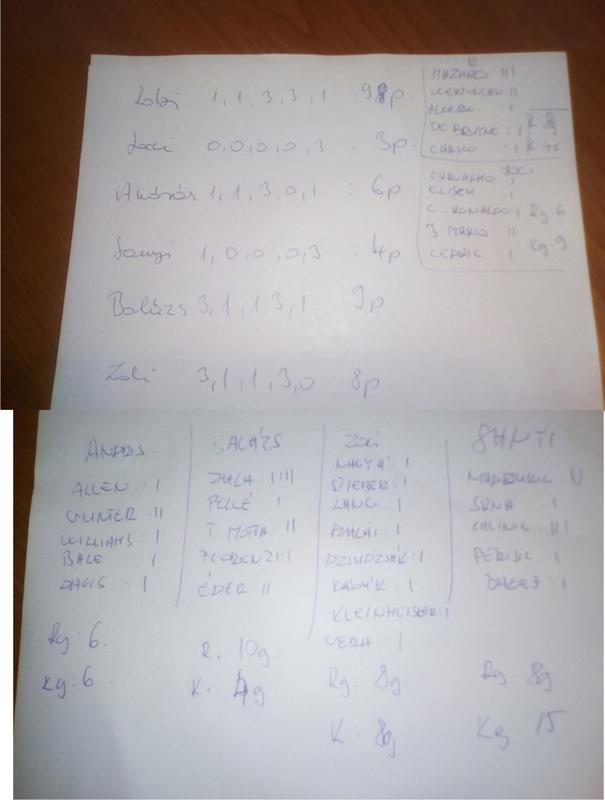 Robi 1, 1, 3, 3, 1 : 9p.
Joci 0, 0, 0, 0, 3 : 3p.
András 1, 1, 3, 0, 1 : 6p
Sanyi 1, 0, 0, 0, 3 : 4p
Balázs 3, 1, 1, 3, 1 9p
Zoli 3, 1, 1, 3, 0 8p.
HAZARD : III
II
I
DE BRUYNE : I
I
CARVALHO Joci
ELISEU : I
C. RONALDO I Rg: 6
J. MARIO : II
CEDRIC : I Kg: 9
ANDRIS
ALLEN : I
GUNTER : II
WILLIAMS : I
BALE : I
DAVIS : I
Rg: 6.
Kg: 6
BALÁZS
IIII
PELLÉ : I
T. MOTTA II
FLORENZI : I
ÉDER : II
R. 10g.
K. 4g
ZOLI
NAGYÁ : I
STIEBER : I
LANG : I
SZALAI : I
DZSUDZSÁK : I
KÁDÁR : I
KLEINHEISLER : I
GERA : I
Rg. 8g
K. 8g
SANYI
II
SRNA : I
KALINIC : III
PERISIC : I
I
Rg: 8g
Kg 15